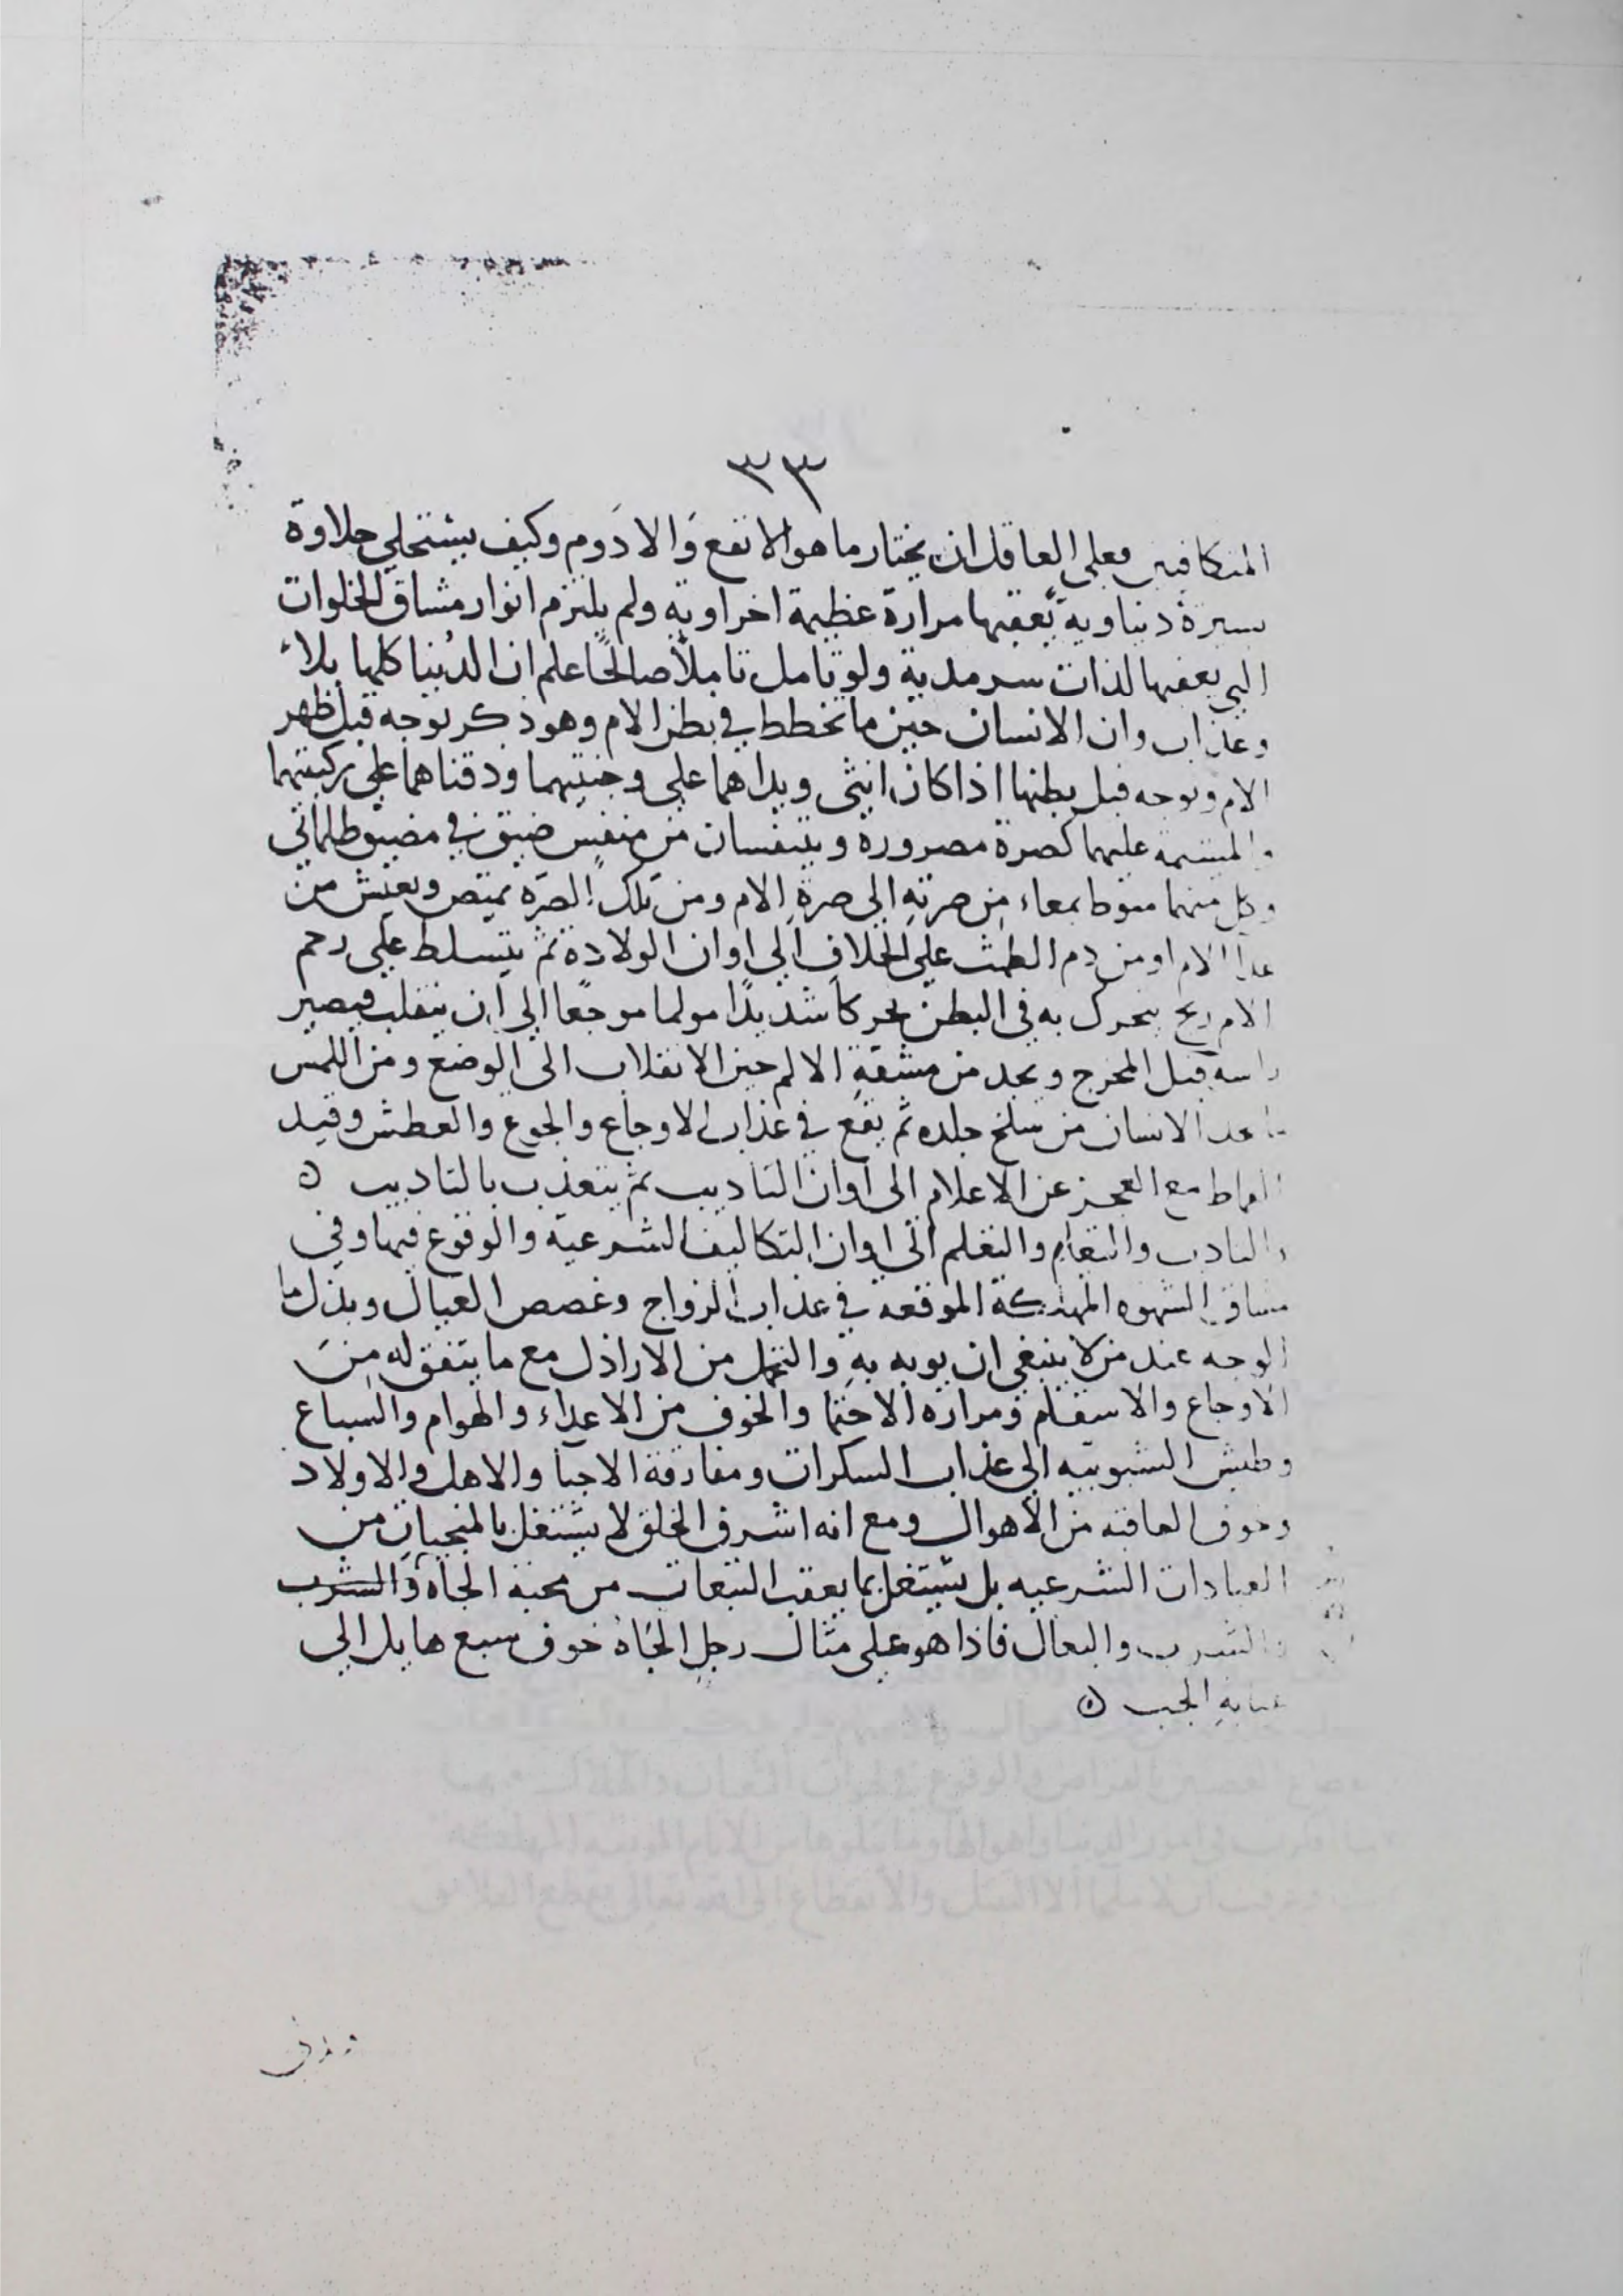 ٣٣
المتكافيين فعلى العاقل ان يختار ما هو الانفع وَالادَوم وكيف يستحلي حلاوة
يسيرة دنياوية يعقبها مرارة عظيمة اخراويه ولم يلتزم انوار مشاق الخلوات
التي يعقبها لذات سرمدية ولو تامل تاملاً صالحًا علم ان الدُنيا كلها بلاء
وعذاب وان الانسان حين ما تخطط في بطن الام وهو ذكر توجه قبل ظهر
الام وتوجه قبل بطنها اذا كان انثى ويداهما على وجنتيهما ودقناهما على ركبتيهما
والمشيمة عليهما كصرة مصرورة ويتنفسان من متنفس ضيق في مضيق ظلماتي
وكل منهما منوط بمعاء من صرته الى صرة الام ومن تلك الصرّه يمتص ويعيش من
غذا الام او من دم الطمث على الخلاف الى اوان الولادة ثم يتسلط على رحم
الام ريح يتحرك به في البطن تحركا شديدًا مولما موجعًا الى ان ينقلب فيصير
راسه قبل المخرج ويجد من مشقة الالم حين الانقلاب الى الوضع ومن اللمس
ما يجد الانسان من سلخ جلده ثم يقع في عذاب الاوجاع والجوع والعطش وقيد
القماط مع العجز عن الاعلام الى اوان التاديب ثم يتعذب بالتاديب ٥
والتادب والتعلم الى اوان التكاليف الشرعية والوقوع فيها وفي
مشاق الشهوه المهتكة الموقعه في عذاب الزواج وغصص العيال وبذل ما
الوجه عند من لا ينبغي ان يوبه بهِ والتحمل من الاراذل مع ما يتفق له مِنَ
الاوجاع والاسقام ومراره الاحتما والخوف من الاعداء والهوام والسباع
وطيش الشبوبيه الى عذاب السكرات ومفارقة الاحبا والاهل والاولاد
وخوف العاقبه من الاهوال ومع انه اشرف الخلق لا يشتغل بالمنجيات من
العبادات الشرعيه بل يشتغل بما يعقب التبعات من محبة الجاه والشرب
والشرب والبعال فاذا هو على مثال رجل الجاهُ خوف سبع هايل الى
غيابهِ الجب ٥